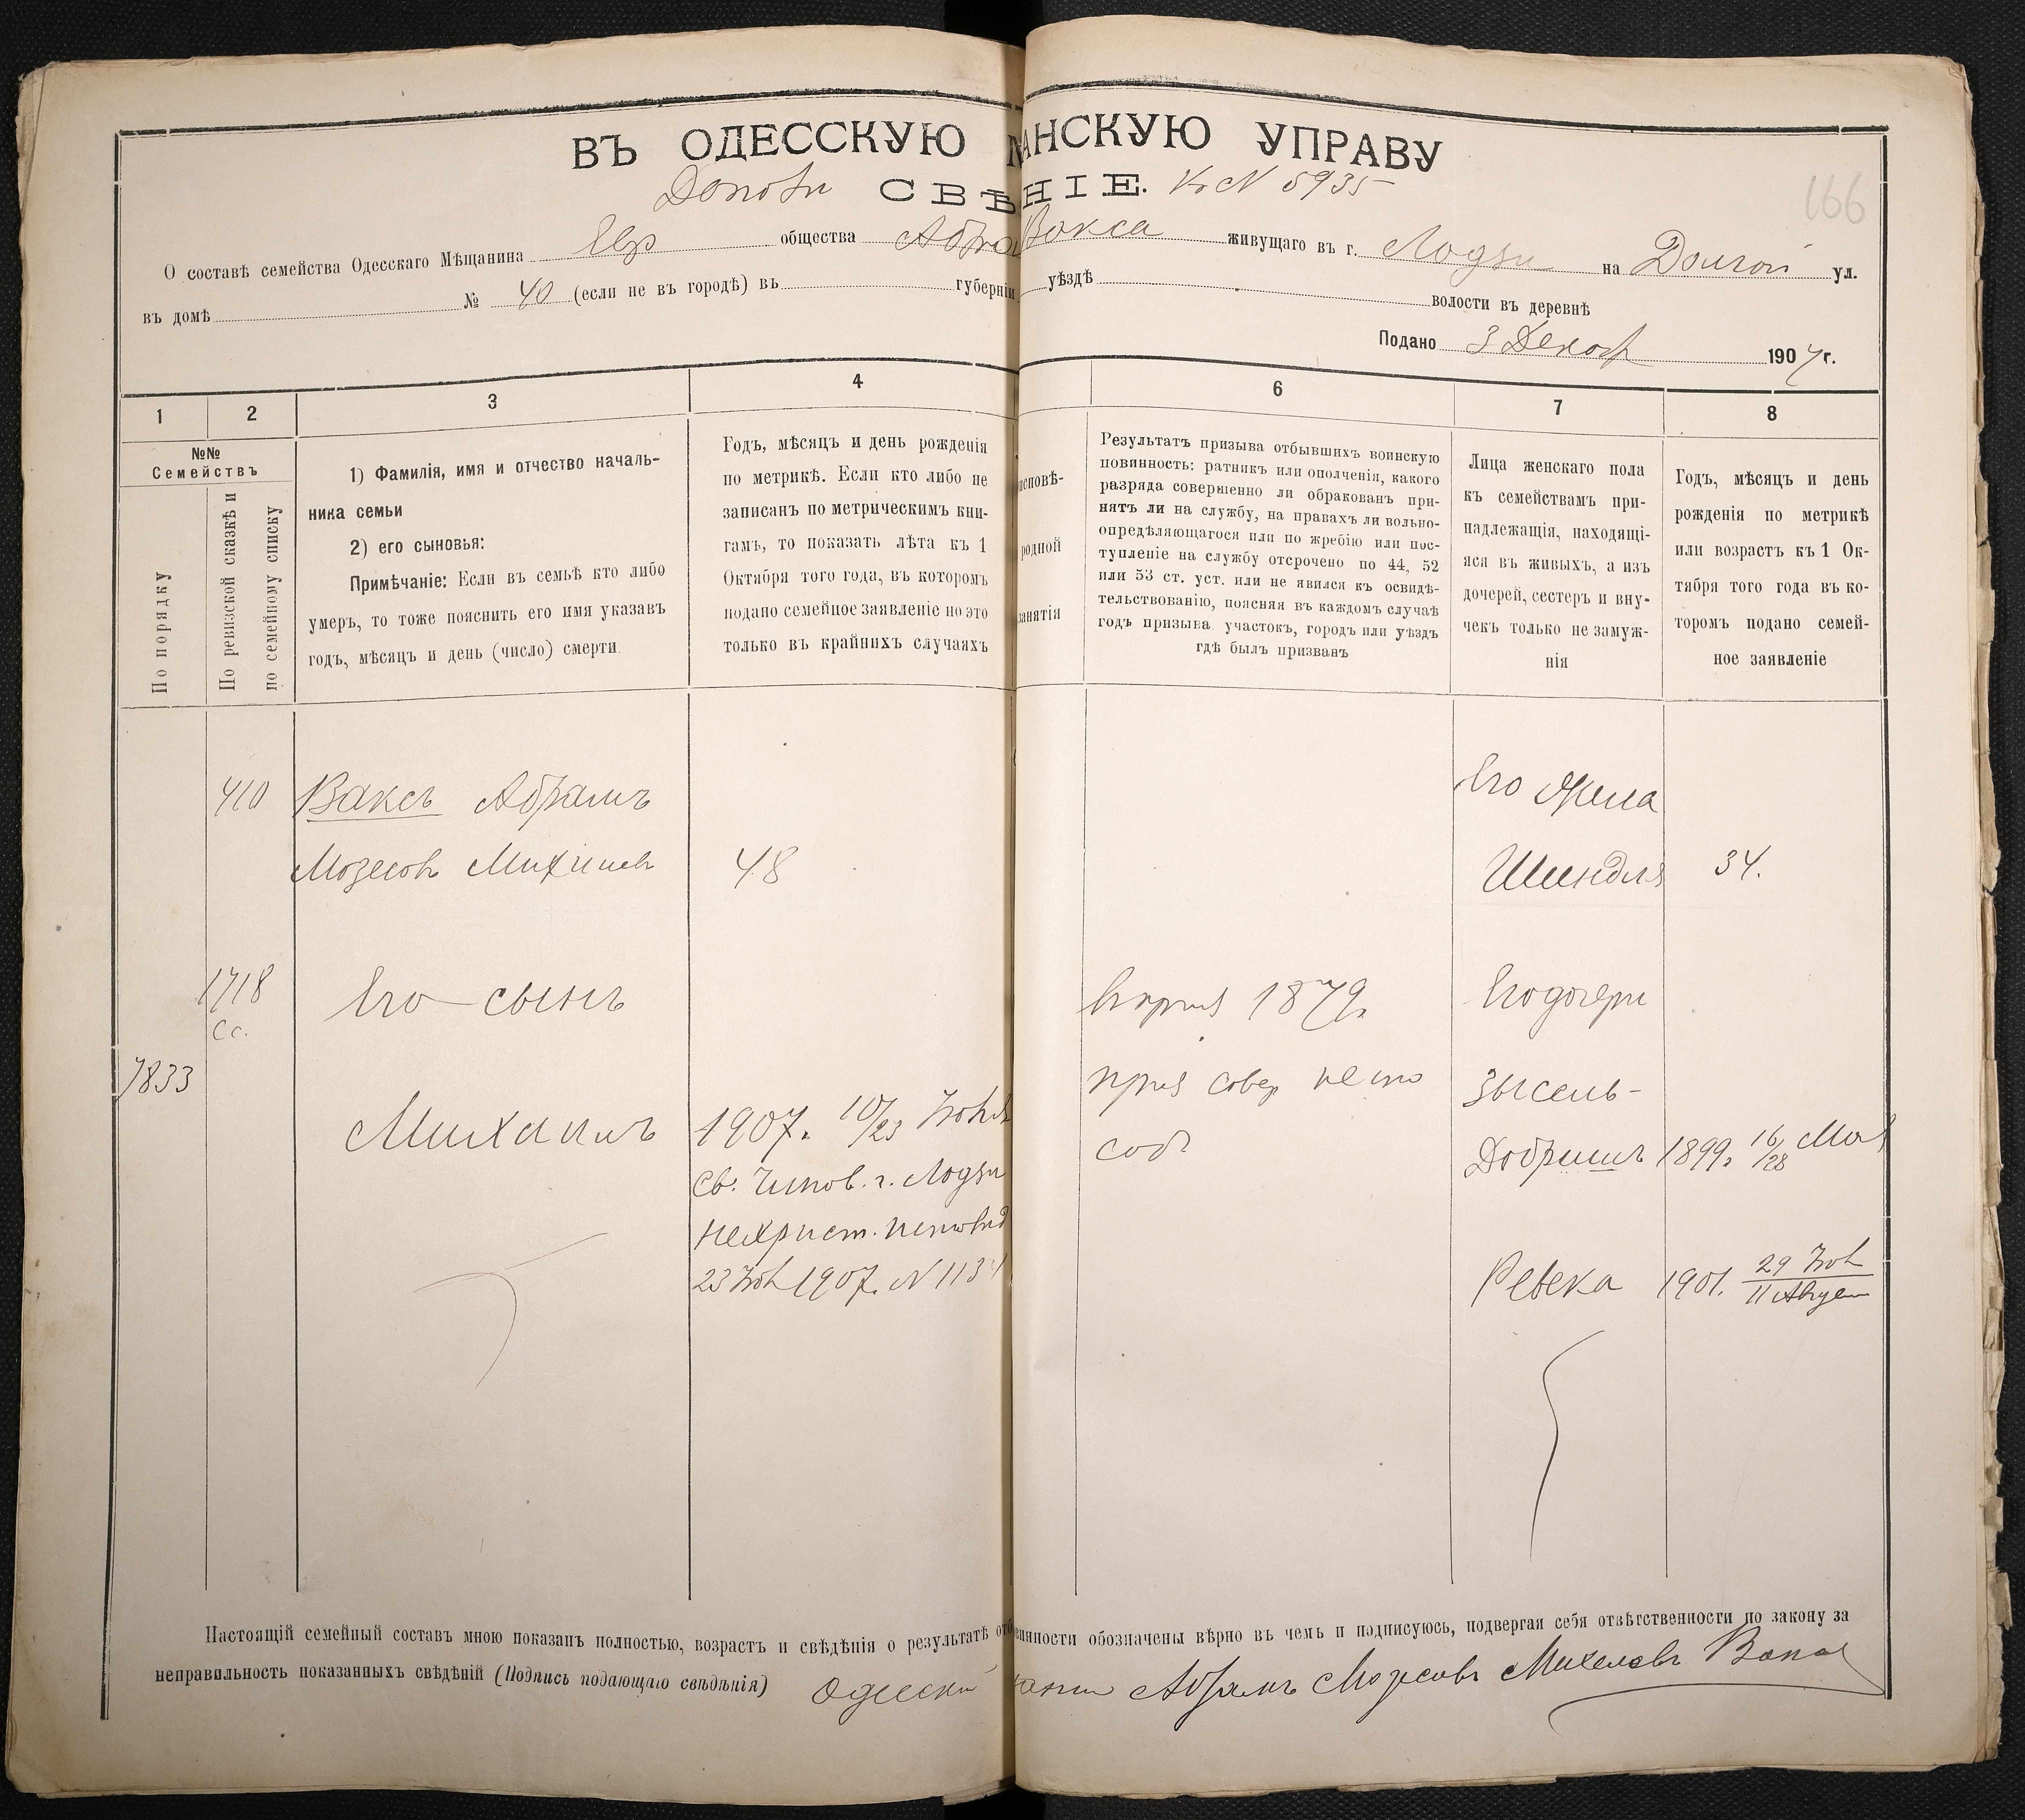 ВЪ ОДЕССКУЮ АНСКУЮ УПРАВУ
СВѢНІЕ. К N 5935
166
О составѣ семейства Одесскаго Мѣщанина Евр общества Абра Вакса живущаго въ г. Лодзи на Долгой ул.
въ домѣ № 40 (если не въ городѣ) въ губерніи уѣздѣ волости въ деревнѣ
Подано 3 Декаб 1907 г.
1 2 3 4 6 7 8
№№
Семействъ
По порядку
По ревизской сказкѣ и
по семейному списку
1) Фамилія, имя и отчество началь-
ника семьи
2) его сыновья:
Примѣчаніе: Если въ семьѣ кто либо
умеръ, то тоже пояснить его имя указавъ
годъ, мѣсяцъ и день (число) смерти
Годъ, мѣсяцъ и день рожденія
по метрикѣ. Если кто либо не
записанъ по метрическимъ кни-
гамъ, то показать лѣта къ 1
Октября того года, въ которомъ
подано семейное заявленіе но это
только въ крайнихъ случаяхъ
исповѣ-
родной
занятія
Результатъ призыва отбывшихъ воинскую
повинность: ратникъ или ополченія, какого
разряда совершенно ли обракованъ при-
нятъ ли на службу, на правахъ ли вольно-
опредѣляющагося или по жребію или пос-
тупленіе на службу отсрочено по 44, 52
или 53 ст. уст. или не явился къ освидѣ-
тельствованію, поясняя въ каждомъ случаѣ
годъ призыва участокъ, городъ или уѣздъ
гдѣ былъ призванъ
Лица женскаго пола
къ семействамъ при-
надлежащія, находящі-
яся въ живыхъ, а изъ
дочерей, сестеръ и вну-
чекъ только не замуж-
нія
Годъ, мѣсяцъ и день
рожденія по метрикѣ
или возрастъ къ 1 Ок-
тября того года въ ко-
торомъ подано семей-
ное заявленіе
410 Ваксъ Абрамъ Его жена
Мозесов Михелев 48 Шейндля 34.
1718 Его сынъ 1879. Его дочери
Сс.
7833 совер не спо Зысель-
Михаилъ 1907. 10/23 Іюля соб Добришъ 1899. 16/28 Мая
Св. Чинов. г. Лодзи
нехрист. исповѣд
23 Іюл 1907. N 1134 Ревека 1901. 29 Іюл
11 Август
Настоящій семейный составъ мною показанъ полностью, возрастъ и свѣдѣнія о результатѣ отб енности обозначены вѣрно въ чемъ и подписуюсь, подвергая себя отвѣтственности по закону за
неправильность показанныхъ свѣдѣній (Подпись подающаго свѣдѣнія) Одесскій Абрамъ Мозесовъ Михелевъ Вакс